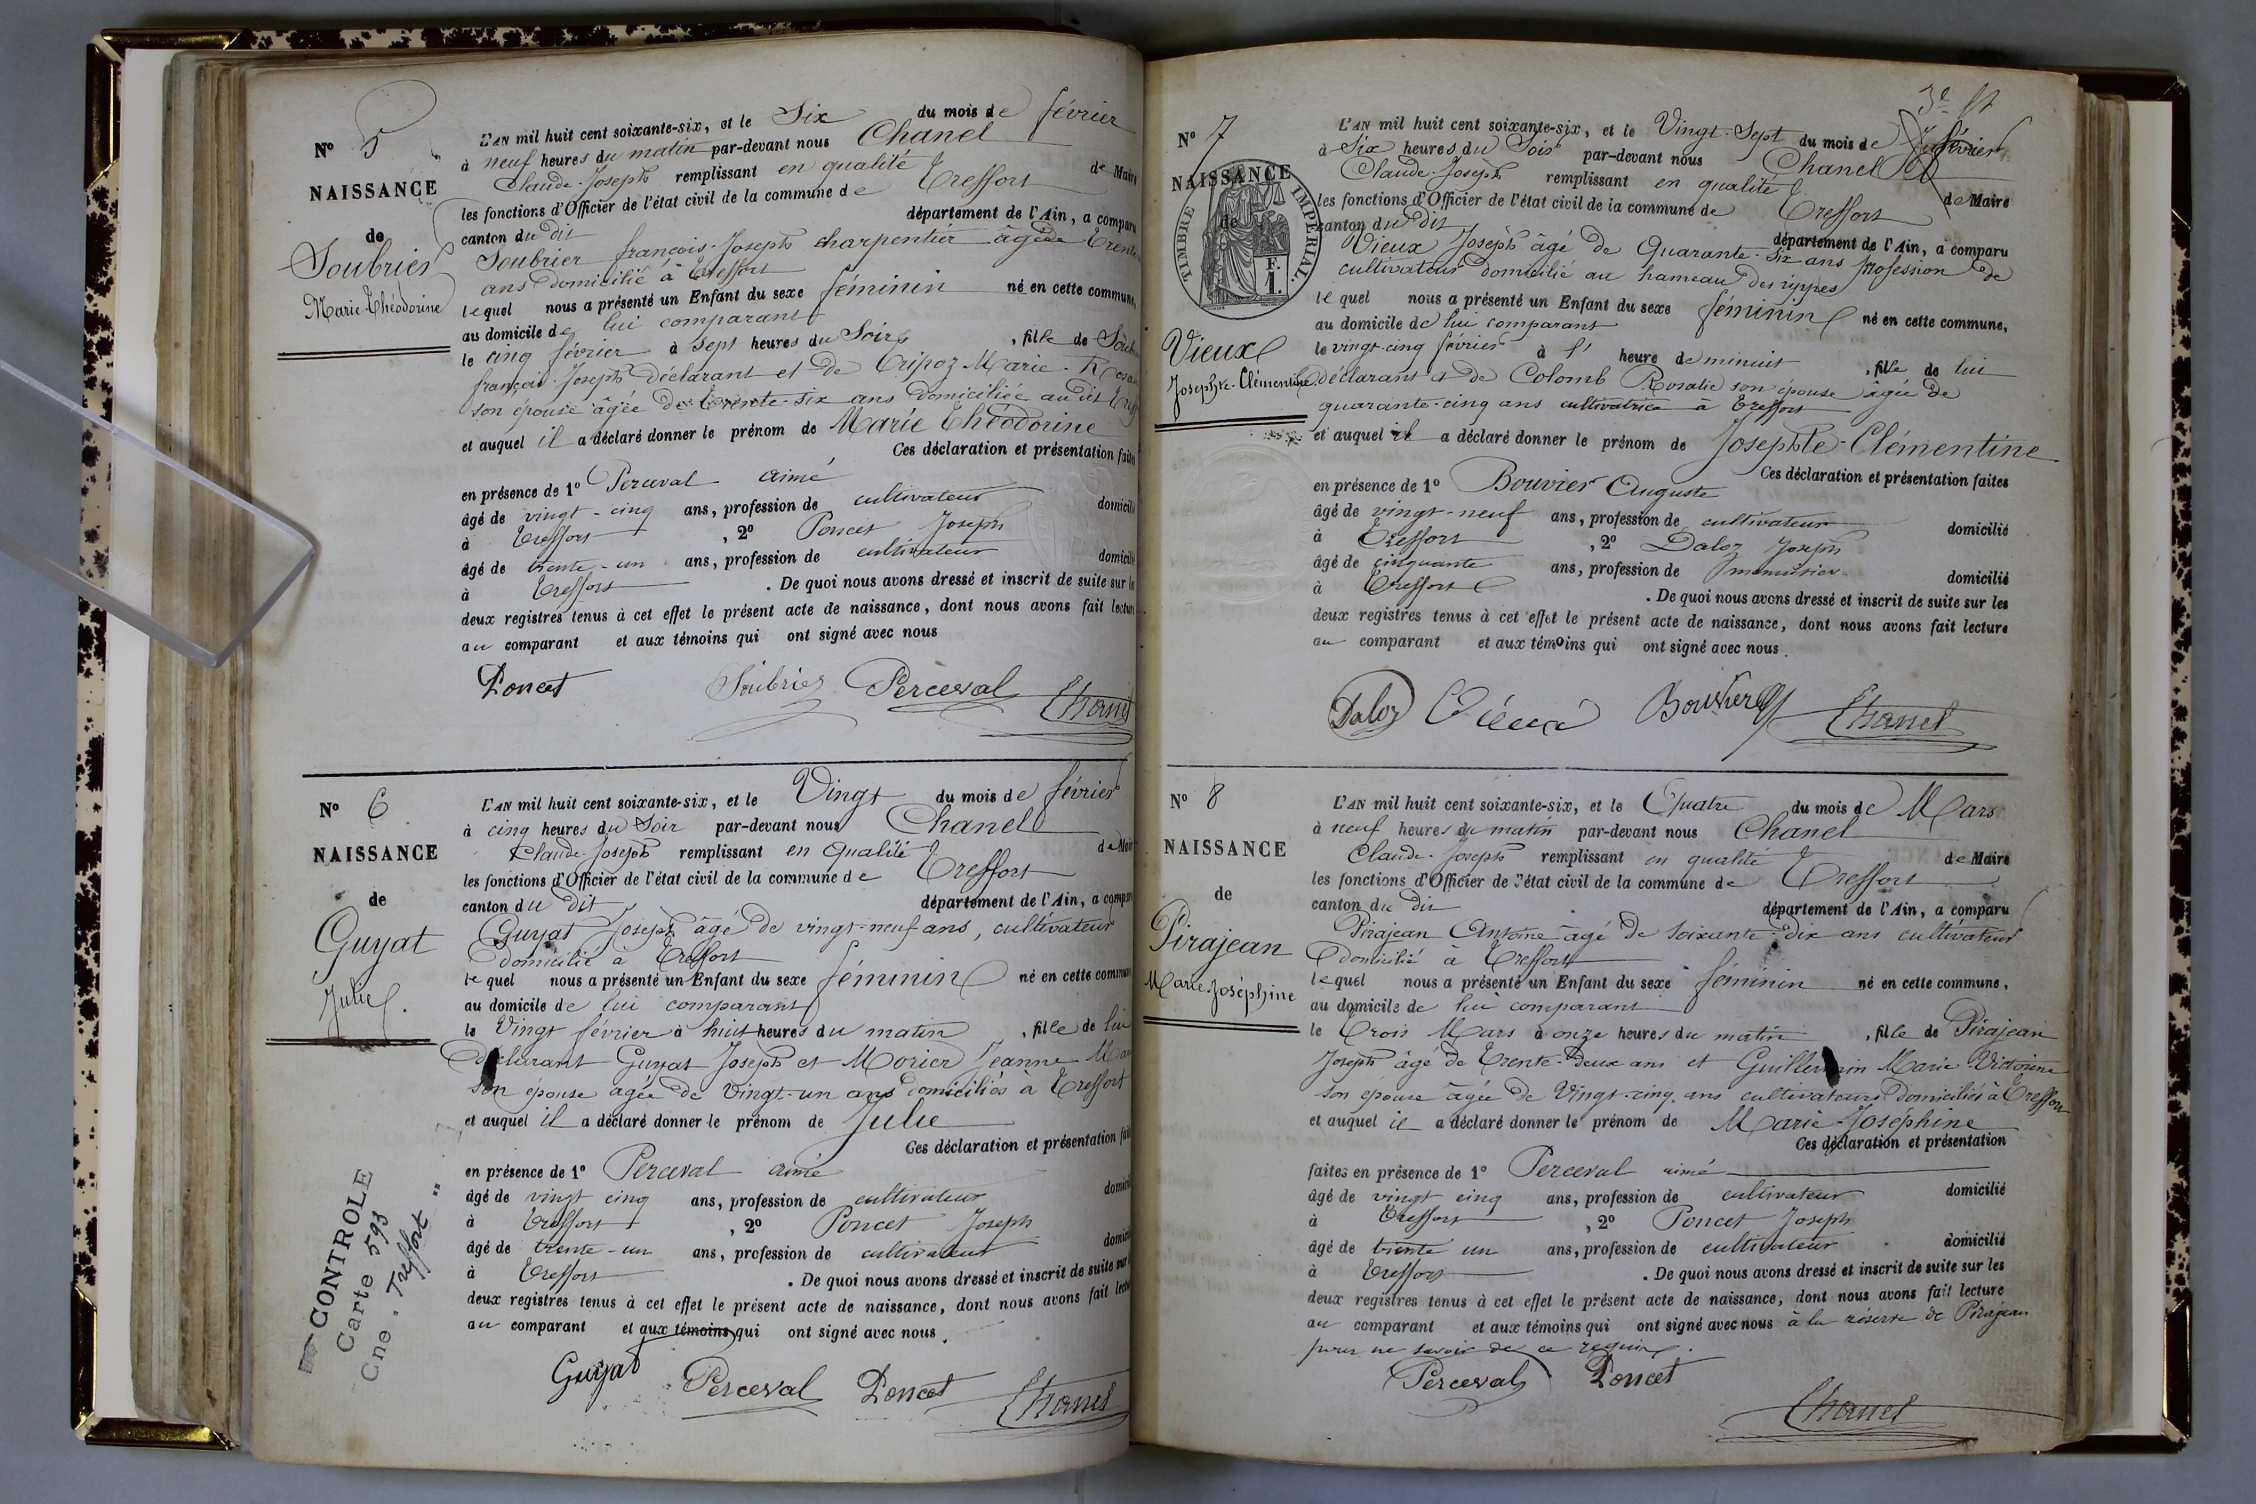 N° 5
NAISSANCE
de
Soubrier
Marie-Théodorine
L'AN mil huit cent soixante-six, et le Six du mois de février
à neuf heures du matin par-devant nous Chanel
Claude-Joseph remplissant en qualité de Maire
les fonctions d'Officier de l'état civil de la commune de Treffort
canton du dit département de l'Ain, a comparu
Soubrier françois-Joseph charpentier âgé de trente
ans domicilié à Treffort
lequel nous a présenté un Enfant du sexe féminin né en cette commune,
au domicile de lui comparant
le cinq février à sept heures du Soir, fille de
françois-Joseph déclarant et de Tripoz Marie
son épouse âgée de trente-six ans domiciliée au dit
et auquel il a déclaré donner le prénom de Marie Théodorine
Ces déclaration et présentation faites
en présence de 1° Perceval aimé
âgé de vingt-cinq ans, profession de cultivateur domicilié
à Treffort, 2° Poncet Joseph
âgé de trente-un ans, profession de cultivateur domicilié
à Treffort. De quoi nous avons dressé et inscrit de suite sur les
deux registres tenus à cet effet le présent acte de naissance, dont nous avons fait lecture
au comparant et aux témoins qui ont signé avec nous
Poncet Soubrier Perceval Chanel
N° 6
NAISSANCE
de
Guyat
Julie
CONTROLE
Carte 593
Cne. Treffort
L'AN mil huit cent soixante-six, et le Vingt du mois de février
à cinq heures du Soir par-devant nous Chanel
Claude-Joseph remplissant en qualité de Maire
les fonctions d'Officier de l'état civil de la commune de Treffort
canton du dit département de l'Ain, a comparu
Guyat Joseph âgé de vingt-neuf ans, cultivateur
domicilié à Treffort
lequel nous a présenté un Enfant du sexe féminin né en cette commune
au domicile de lui comparant
le Vingt février à huit heures du matin, fille de lui
déclarant Guyat Joseph et Morier Jeanne
son épouse âgée de Vingt-un ans domiciliés à Treffort
et auquel il a déclaré donner le prénom de Julie
Ces déclaration et présentation faites
en présence de 1° Perceval aimé
âgé de vingt cinq ans, profession de cultivateur domicilié
à Treffort, 2° Poncet Joseph
âgé de trente-un ans, profession de cultivateur domicilié
à Treffort. De quoi nous avons dressé et inscrit de suite sur
deux registres tenus à cet effet le présent acte de naissance, dont nous avons fait lecture
au comparant et aux témoins qui ont signé avec nous.
Guyat Perceval Poncet Chanel
N° 7
NAISSANCE
de
TIMBRE IMPERIAL
1 F.
Vieux
Josephte-Clémentine
L'AN mil huit cent soixante-six, et le Vingt-Sept du mois de février
à Six heures du Soir par-devant nous Chanel
Claude-Joseph remplissant en qualité de Maire
les fonctions d'Officier de l'état civil de la commune de Treffort
canton du dit département de l'Ain, a comparu
Vieux Joseph âgé de Quarante-Six ans profession de
cultivateur domicilié au hameau des rippes
lequel nous a présenté un Enfant du sexe féminin né en cette commune,
au domicile de lui comparant
le vingt-cinq février à l' heure de minuit, fille de lui
déclarant et de Colomb Rosalie son épouse âgée de
quarante-cinq ans cultivatrice à Treffort
et auquel il a déclaré donner le prénom de Josephte-Clémentine
Ces déclaration et présentation faites
en présence de 1° Bouvier Auguste
âgé de vingt-neuf ans, profession de cultivateur domicilié
à Treffort, 2° Daloz Joseph
âgé de cinquante ans, profession de menuisier domicilié
à Treffort. De quoi nous avons dressé et inscrit de suite sur les
deux registres tenus à cet effet le présent acte de naissance, dont nous avons fait lecture
au comparant et aux témoins qui ont signé avec nous.
Daloz Vieux Bouvier Chanel
N° 8
NAISSANCE
de
Pirajean
Marie-Joséphine
L'AN mil huit cent soixante-six, et le Quatre du mois de Mars
à neuf heures du matin par-devant nous Chanel
Claude-Joseph remplissant en qualité de Maire
les fonctions d'Officier de l'état civil de la commune de Treffort
canton du dit département de l'Ain, a comparu
Pirajean Antoine âgé de soixante-dix ans cultivateur
domicilié à Treffort
lequel nous a présenté un Enfant du sexe féminin né en cette commune,
au domicile de lui comparant
le Trois Mars à onze heures du matin, fille de Pirajean
Joseph âgé de Trente-deux ans et Guillermin Marie Victorine
son épouse âgée de Vingt-cinq ans cultivateurs domiciliés à Treffort
et auquel il a déclaré donner le prénom de Marie-Joséphine
Ces déclaration et présentation
faites en présence de 1° Perceval aimé
âgé de vingt cinq ans, profession de cultivateur domicilié
à Treffort, 2° Poncet Joseph
âgé de trente un ans, profession de cultivateur domicilié
à Treffort. De quoi nous avons dressé et inscrit de suite sur les
deux registres tenus à cet effet le présent acte de naissance, dont nous avons fait lecture
au comparant et aux témoins qui ont signé avec nous à la réserve de Pirajean
pour ne savoir de ce requis.
Perceval Poncet
Chanel